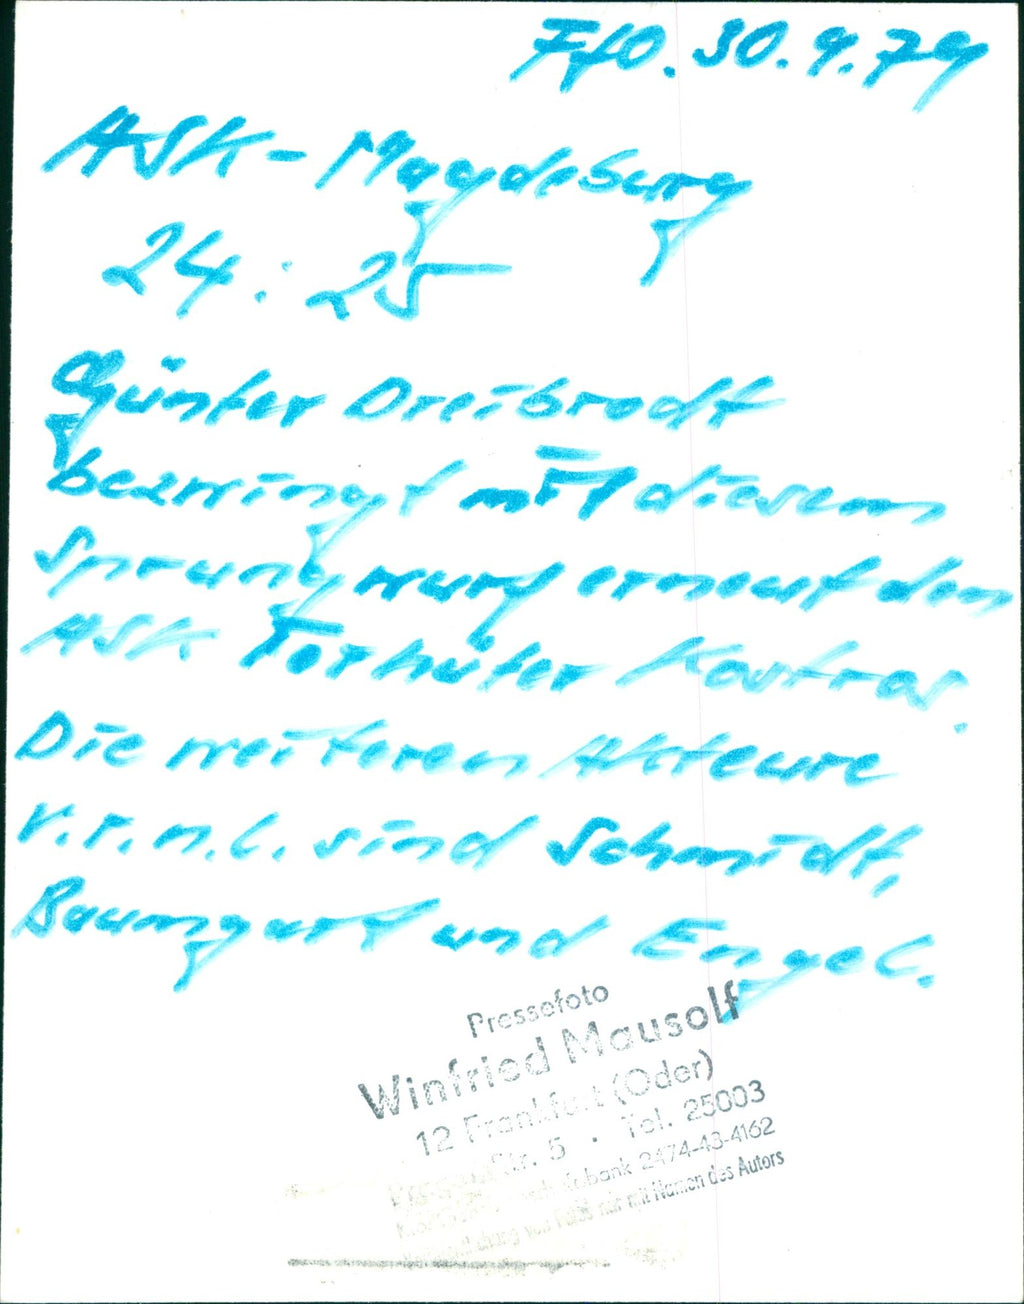 Ffo. 30.9.79
ASK-Magdeburg
24:25
Günter Dreibrodt
bezwingt mit diesem
Sprungwurf erneut den
ASK Torhüter Kostras.
Die weiteren Akteure
v.r.n.l. sind Schmidt,
Baumgart und Engel.
Pressefoto
Winfried Mausolf
12 Frankfurt (Oder)
Str. 5 · Tel. 25003
2474-43-4162
nur mit Namen des Autors